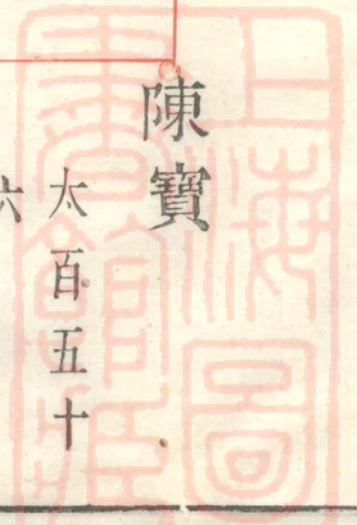 陳寶
太百五十
六